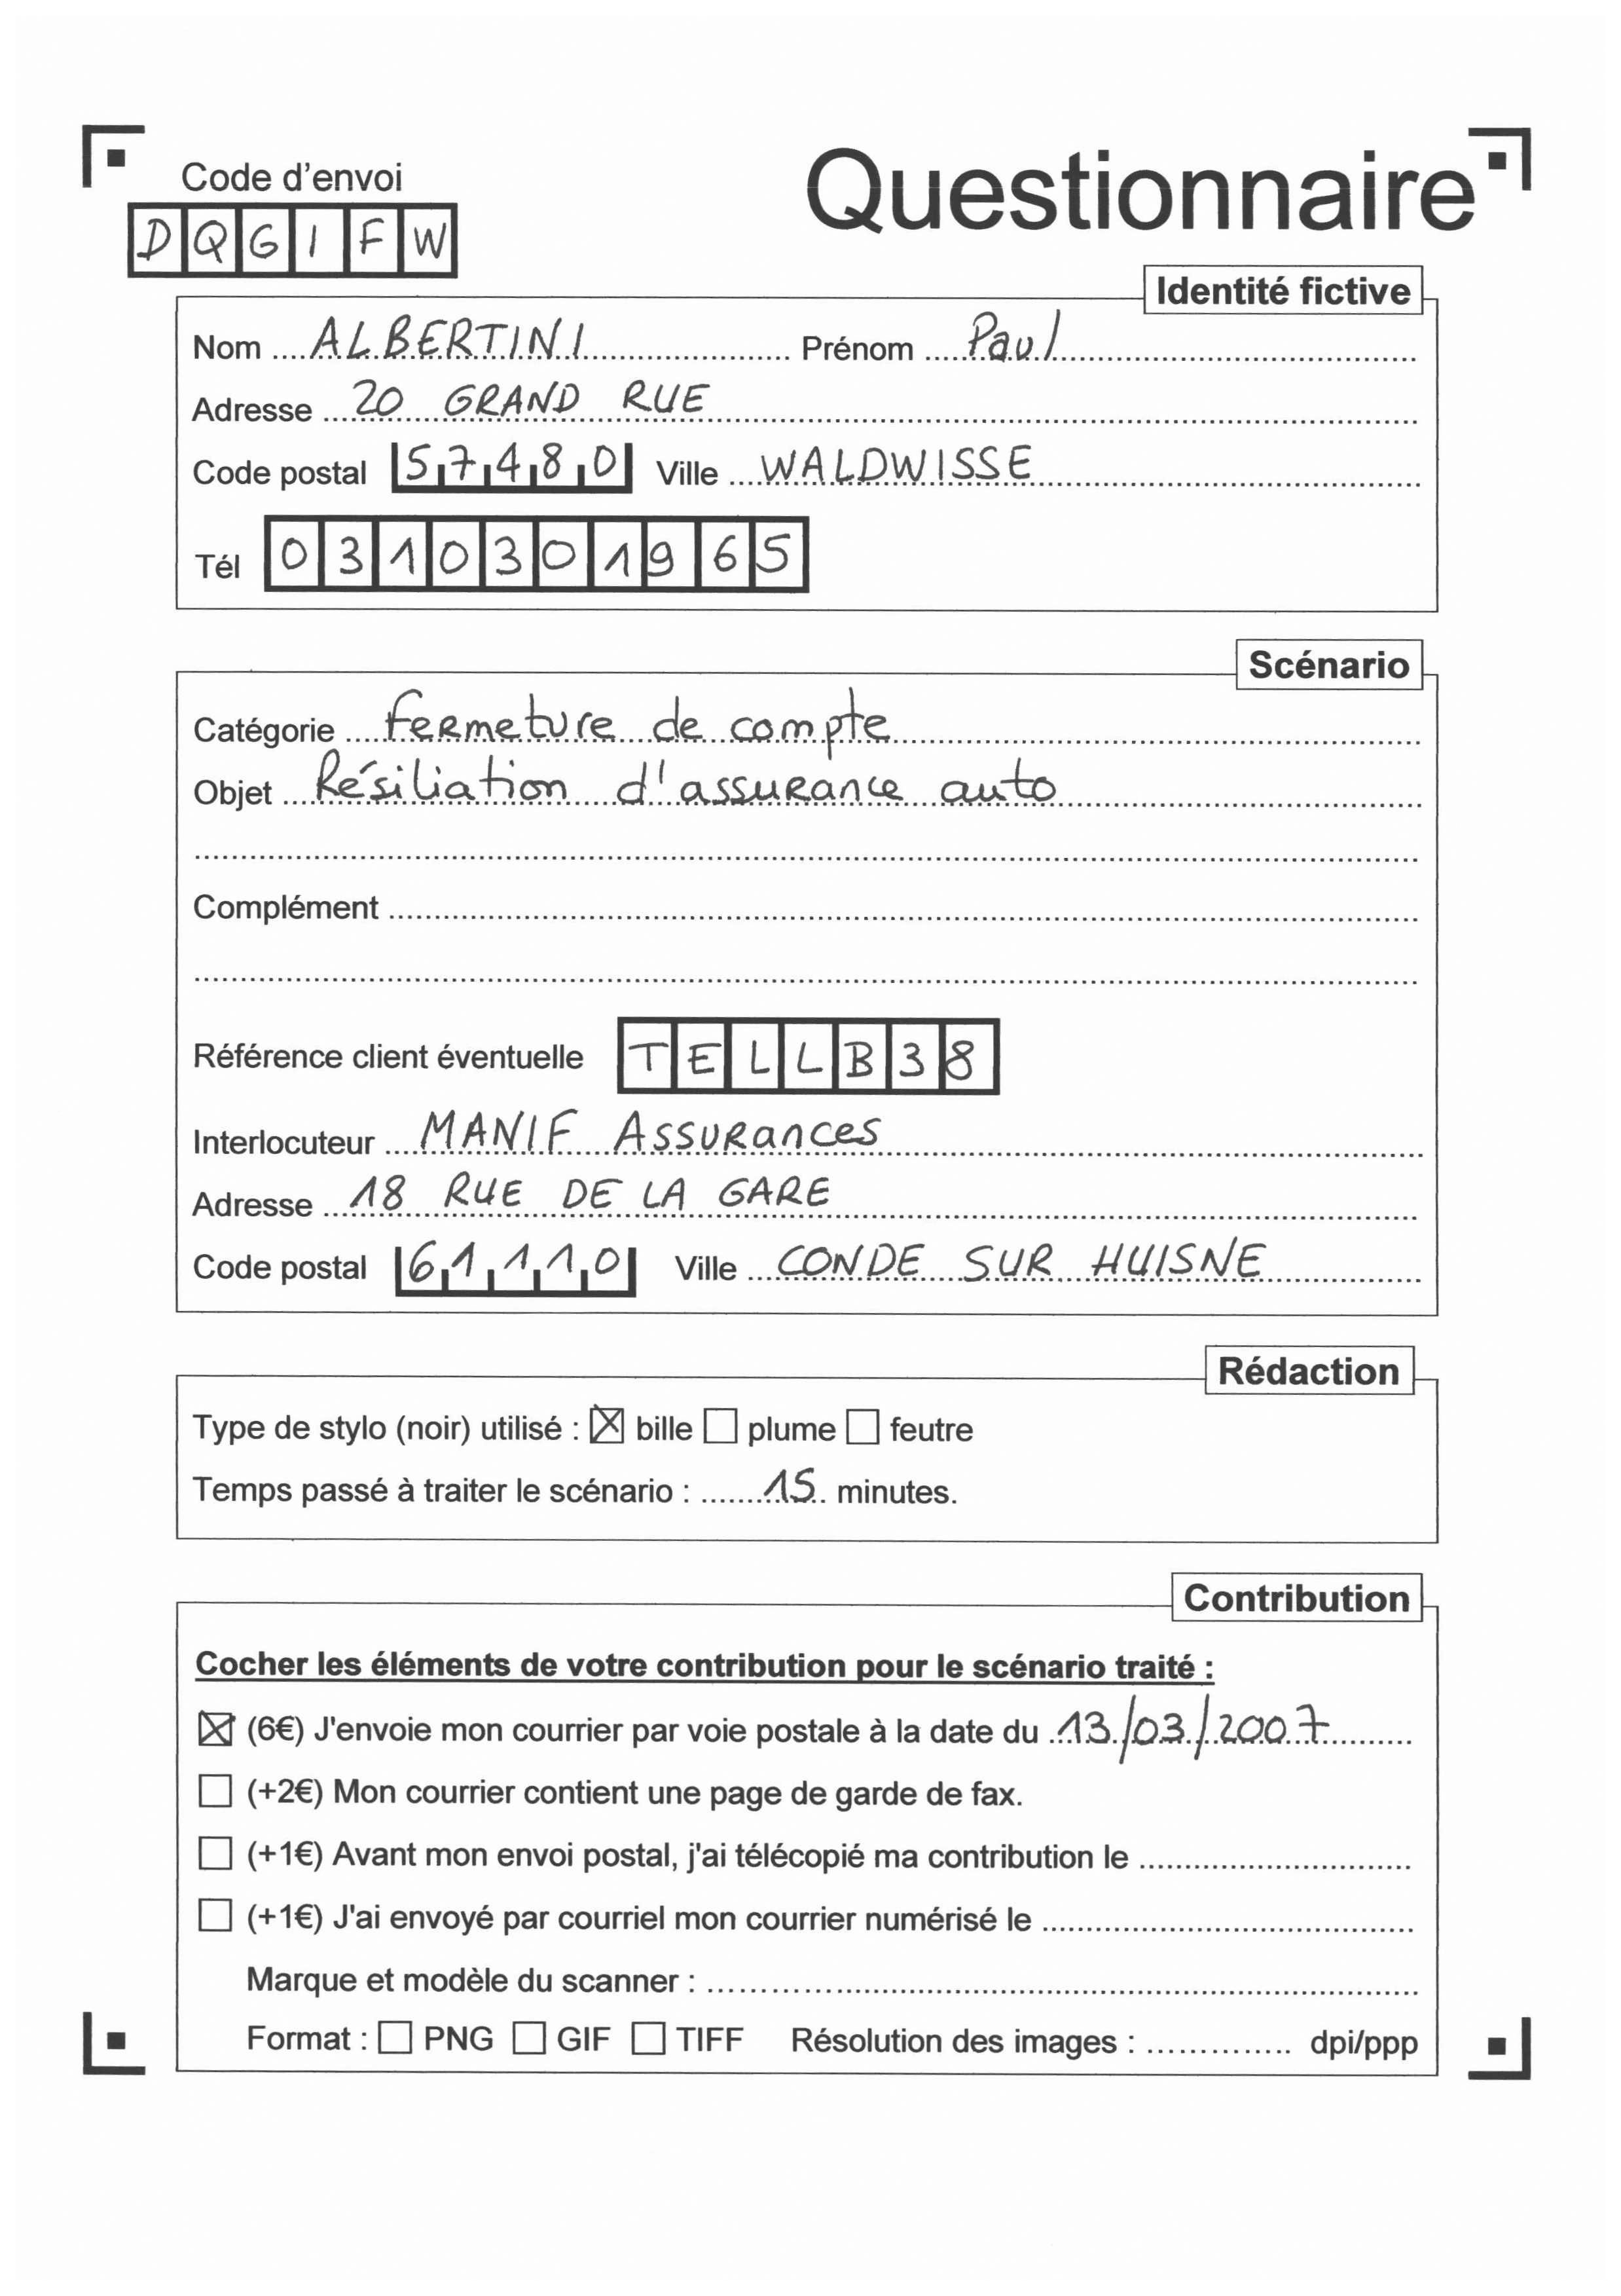 Code d'envoi
Questionnaire
DQGIFW
Identité fictive
Nom ALBERTINI Prénom Paul
Adresse 20 GRAND RUE
Code postal 57480 Ville WALDWISSE
Tél 0310301965
Scénario
Catégorie Fermeture de compte
Objet Résiliation d'assurance auto
Complément
Référence client éventuelle TELLB38
Interlocuteur MANIF Assurances
Adresse 18 RUE DE LA GARE
Code postal 61110 Ville CONDE SUR HUISNE
Rédaction
Type de stylo (noir) utilisé : ☒ bille ☐ plume ☐ feutre
Temps passé à traiter le scénario : 15 minutes.
Contribution
Cocher les éléments de votre contribution pour le scénario traité :
☒ (6€) J'envoie mon courrier par voie postale à la date du 13/03/2007
☐ (+2€) Mon courrier contient une page de garde de fax.
☐ (+1€) Avant mon envoi postal, j'ai télécopié ma contribution le
☐ (+1€) J'ai envoyé par courriel mon courrier numérisé le
Marque et modèle du scanner :
Format : ☐ PNG ☐ GIF ☐ TIFF Résolution des images : dpi/ppp